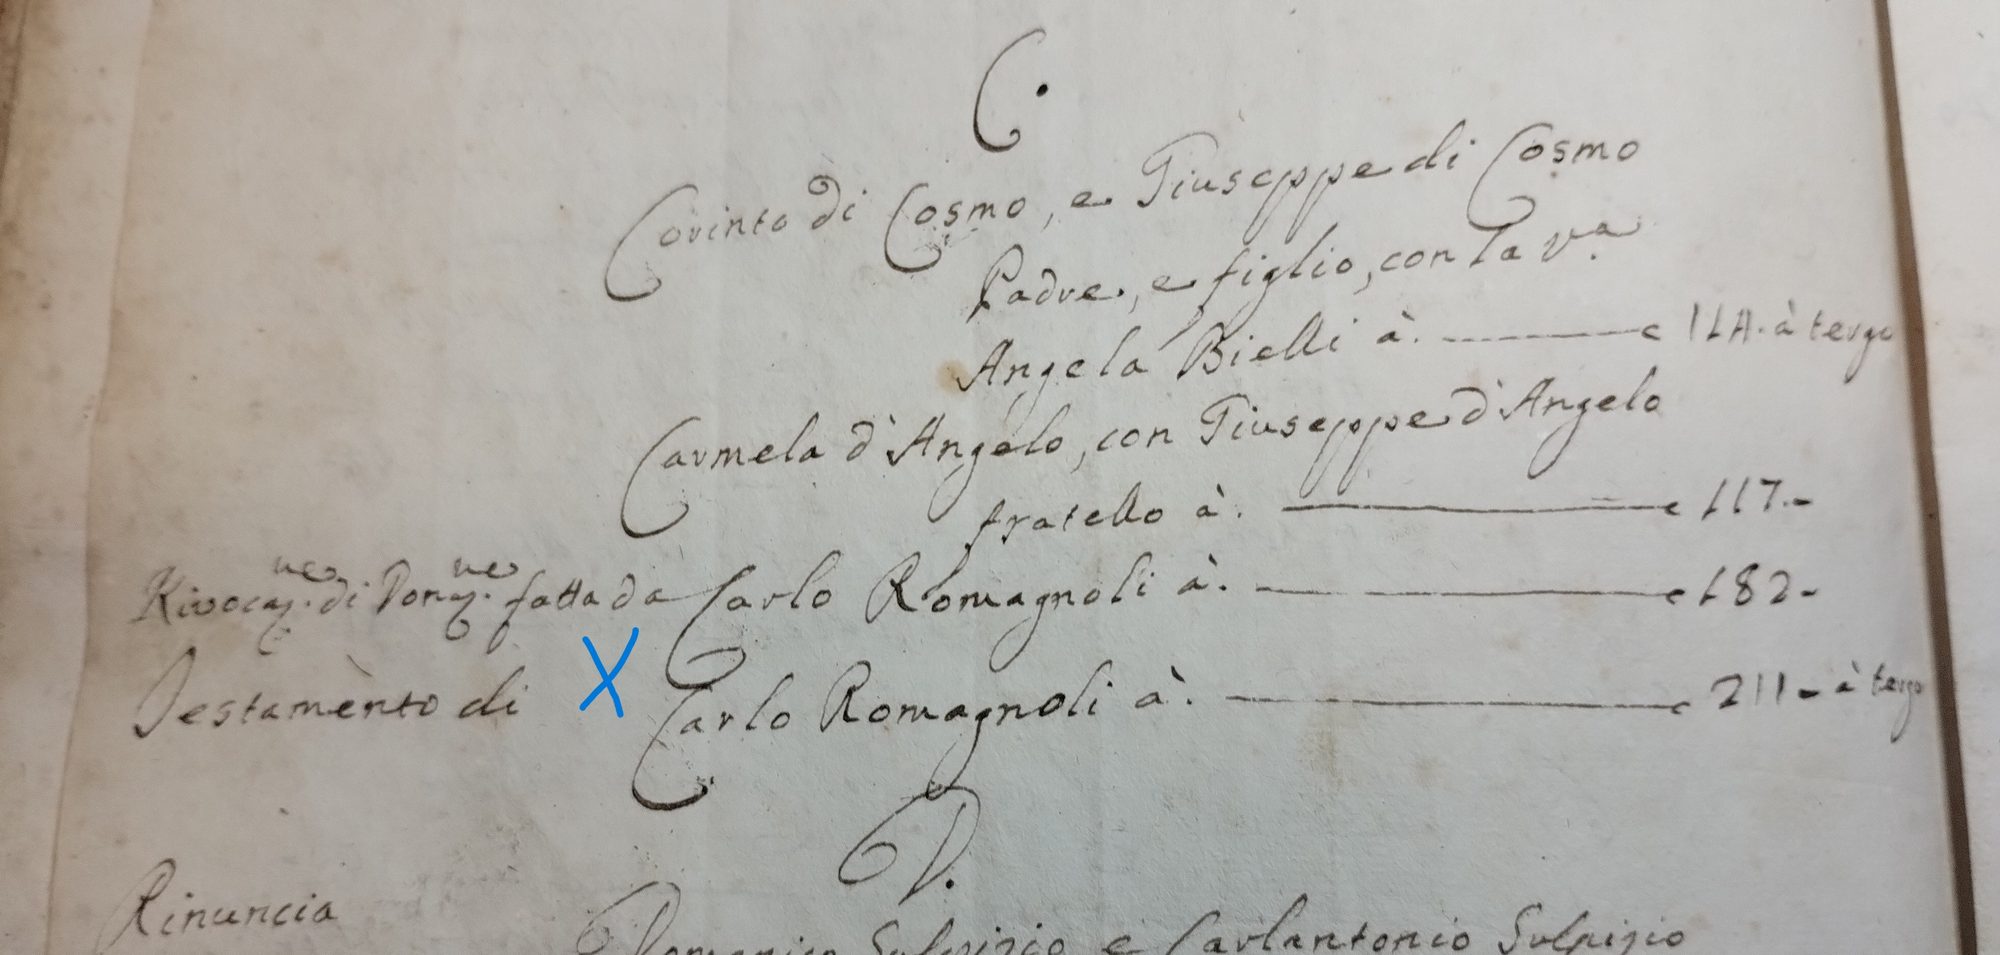 C.
Corinto di Cosmo, e Giuseppe di Cosmo
Padre, e figlio, con la va.
Angela Bielli à. 114. à tergo
Carmela d'Angelo, con Giuseppe d'Angelo
fratello à. 117.-
Rivocaz.ne di Donaz.ne fatta da Carlo Romagnoli à. 182-
Testamento di X Carlo Romagnoli à. 211- à tergo
D.
Rinuncia
Domenico Sulpizio e Carlantonio Sulpizio